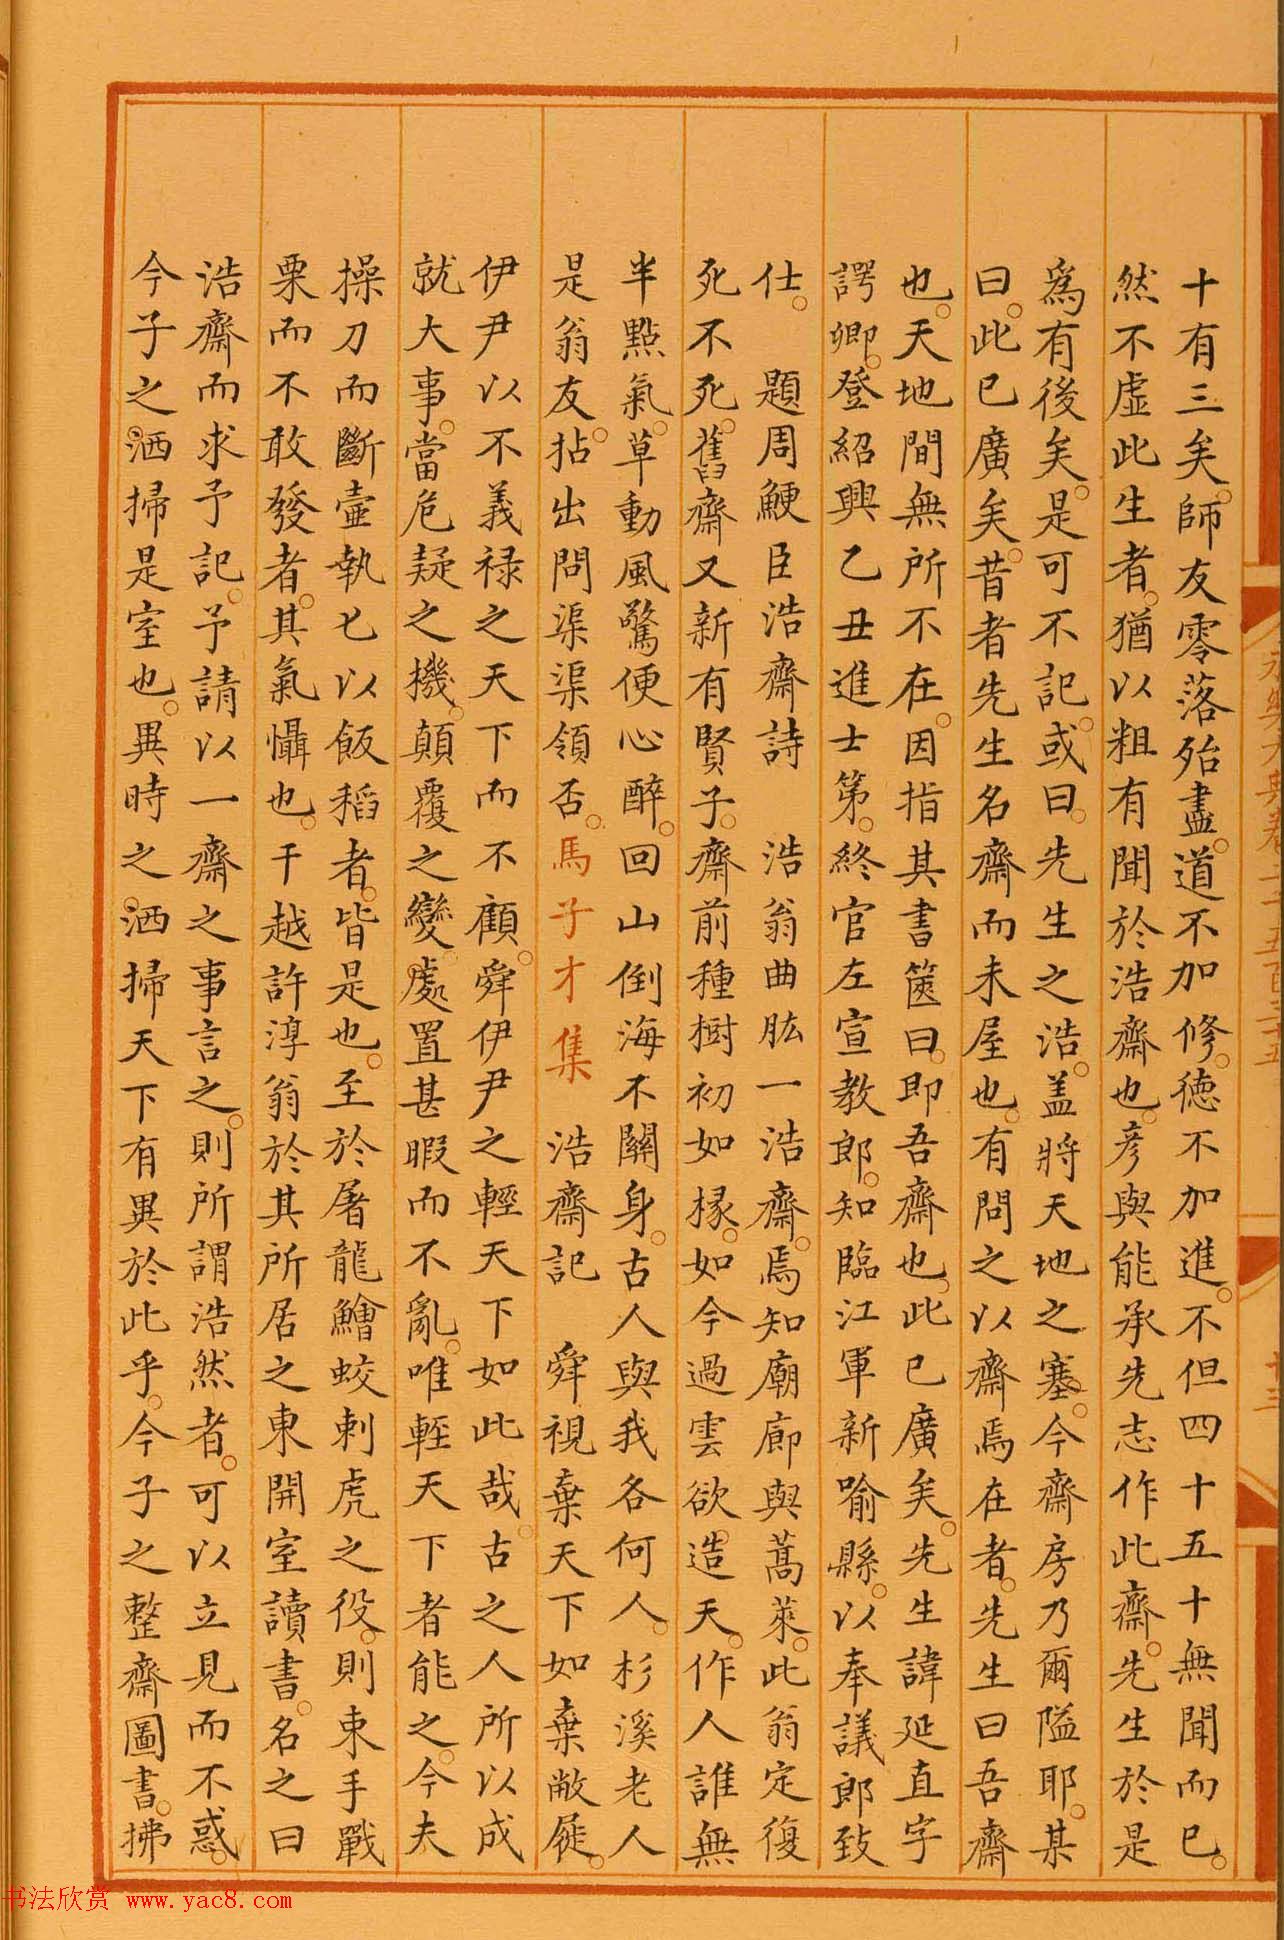 十有三矣。師友零落殆盡。道不加修。德不加進。不但四十五十無聞而已。
然不虛此生者。猶以粗有聞於浩齋也。彥與能承先志作此齋。先生於是
爲有後矣。是可不記。或曰。先生之浩。蓋將天地之塞。今齋房乃爾隘耶。某
曰。此已廣矣。昔者先生名齋而未屋也。有問之以齋焉在者。先生曰吾齋
也。天地間無所不在。因指其書篋曰。即吾齋也。此已廣矣。先生諱延直字
諤卿。登紹興乙丑進士第。終官左宣教郎。知臨江軍新喻縣。以奉議郎致
仕。 題周鯁臣浩齋詩 浩翁曲肱一浩齋。焉知廟廊與蒿萊。此翁定復
死不死。舊齋又新有賢子。齋前種樹初如椽。如今過雲欲造天。作人誰無
半點氣。草動風驚便心醉。回山倒海不關身。古人與我各何人。杉溪老人
是翁友。拈出問渠渠領否。馬子才集 浩齋記 舜視棄天下如棄敝屣。
伊尹以不義祿之天下而不顧。舜伊尹之輕天下如此哉。古之人所以成
就大事。當危疑之機。顛覆之變。處置甚暇而不亂。唯輕天下者能之。今夫
操刀而斷壼執匕以飯稻者。皆是也。至於屠龍鱠蛟刺虎之役。則束手戰
栗而不敢發者。其氣懾也。干越許淳翁於其所居之東開室讀書。名之曰
浩齋而求予記。予請以一齋之事言之。則所謂浩然者。可以立見而不惑。
今子之洒掃是室也。異時之洒掃天下有異於此乎。今子之整齋圖書。拂
永樂大典卷二千五百三十五
十三
书法欣赏 www.yac8.com